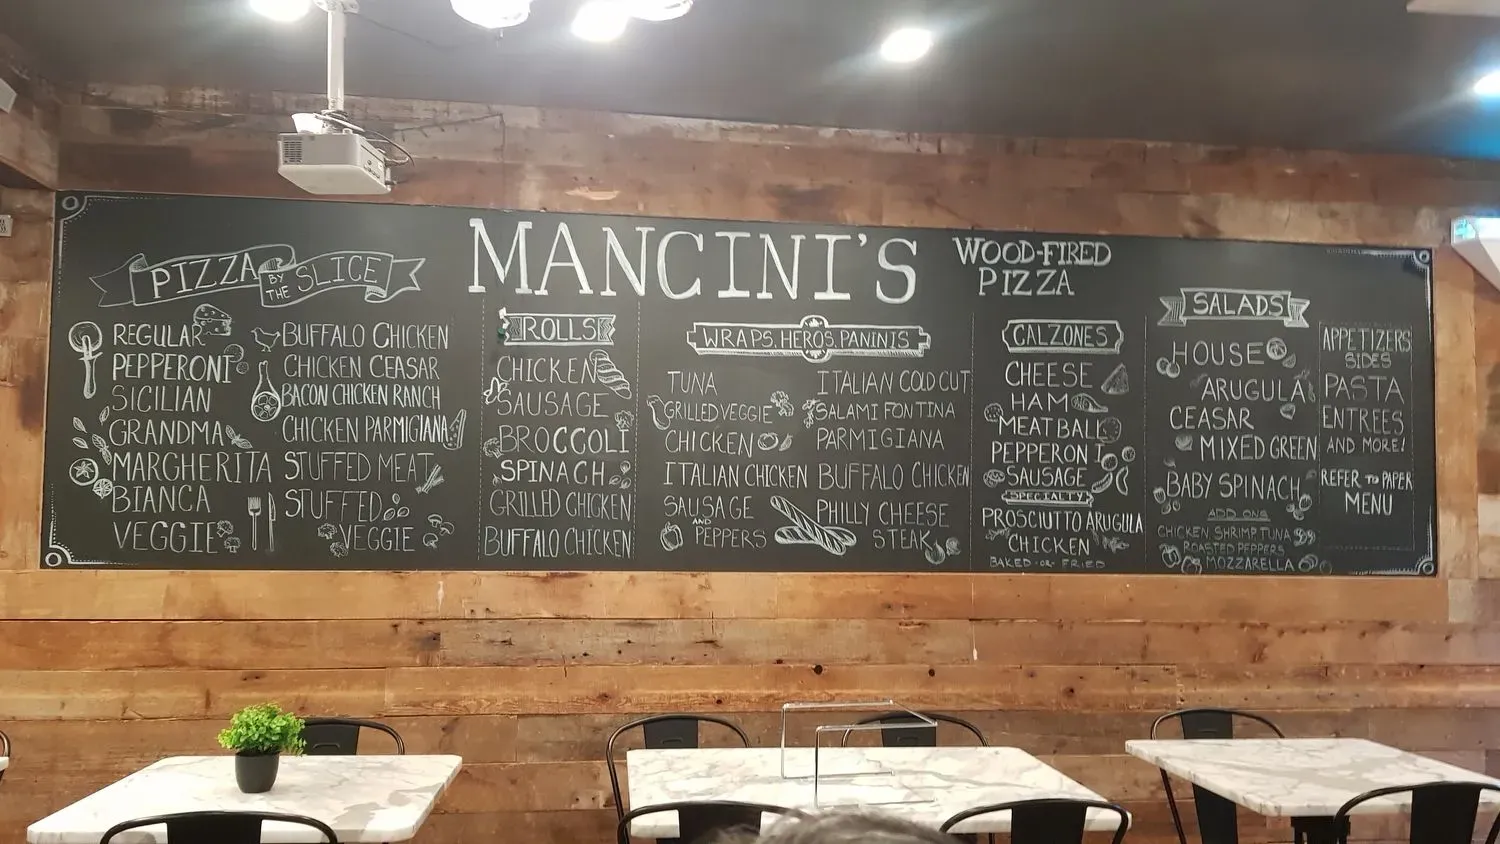 MANCINI'S
WOOD-FIRED
PIZZA
PIZZA BY THE SLICE
REGULAR
PEPPERONI
SICILIAN
GRANDMA
MARGHERITA
BIANCA
VEGGIE
BUFFALO CHICKEN
CHICKEN CEASAR
BACON CHICKEN RANCH
CHICKEN PARMIGIANA
STUFFED MEAT
STUFFED
VEGGIE
ROLLS
CHICKEN
SAUSAGE
BROCCOLI
SPINACH
GRILLED CHICKEN
BUFFALO CHICKEN
WRAPS. HEROS. PANINIS
TUNA
GRILLED VEGGIE
CHICKEN
ITALIAN CHICKEN
SAUSAGE
AND
PEPPERS
ITALIAN COLD CUT
SALAMI FONTINA
PARMIGIANA
BUFFALO CHICKEN
PHILLY CHEESE
STEAK
CALZONES
CHEESE
HAM
MEATBALL
PEPPERONI
SAUSAGE
SPECIALTY
PROSCIUTTO ARUGULA
CHICKEN
BAKED OR FRIED
SALADS
HOUSE
ARUGULA
CEASAR
MIXED GREEN
BABY SPINACH
ADD ONS
CHICKEN, SHRIMP, TUNA
ROASTED PEPPERS
MOZZARELLA
APPETIZERS
SIDES
PASTA
ENTREES
AND MORE!
REFER TO PAPER
MENU